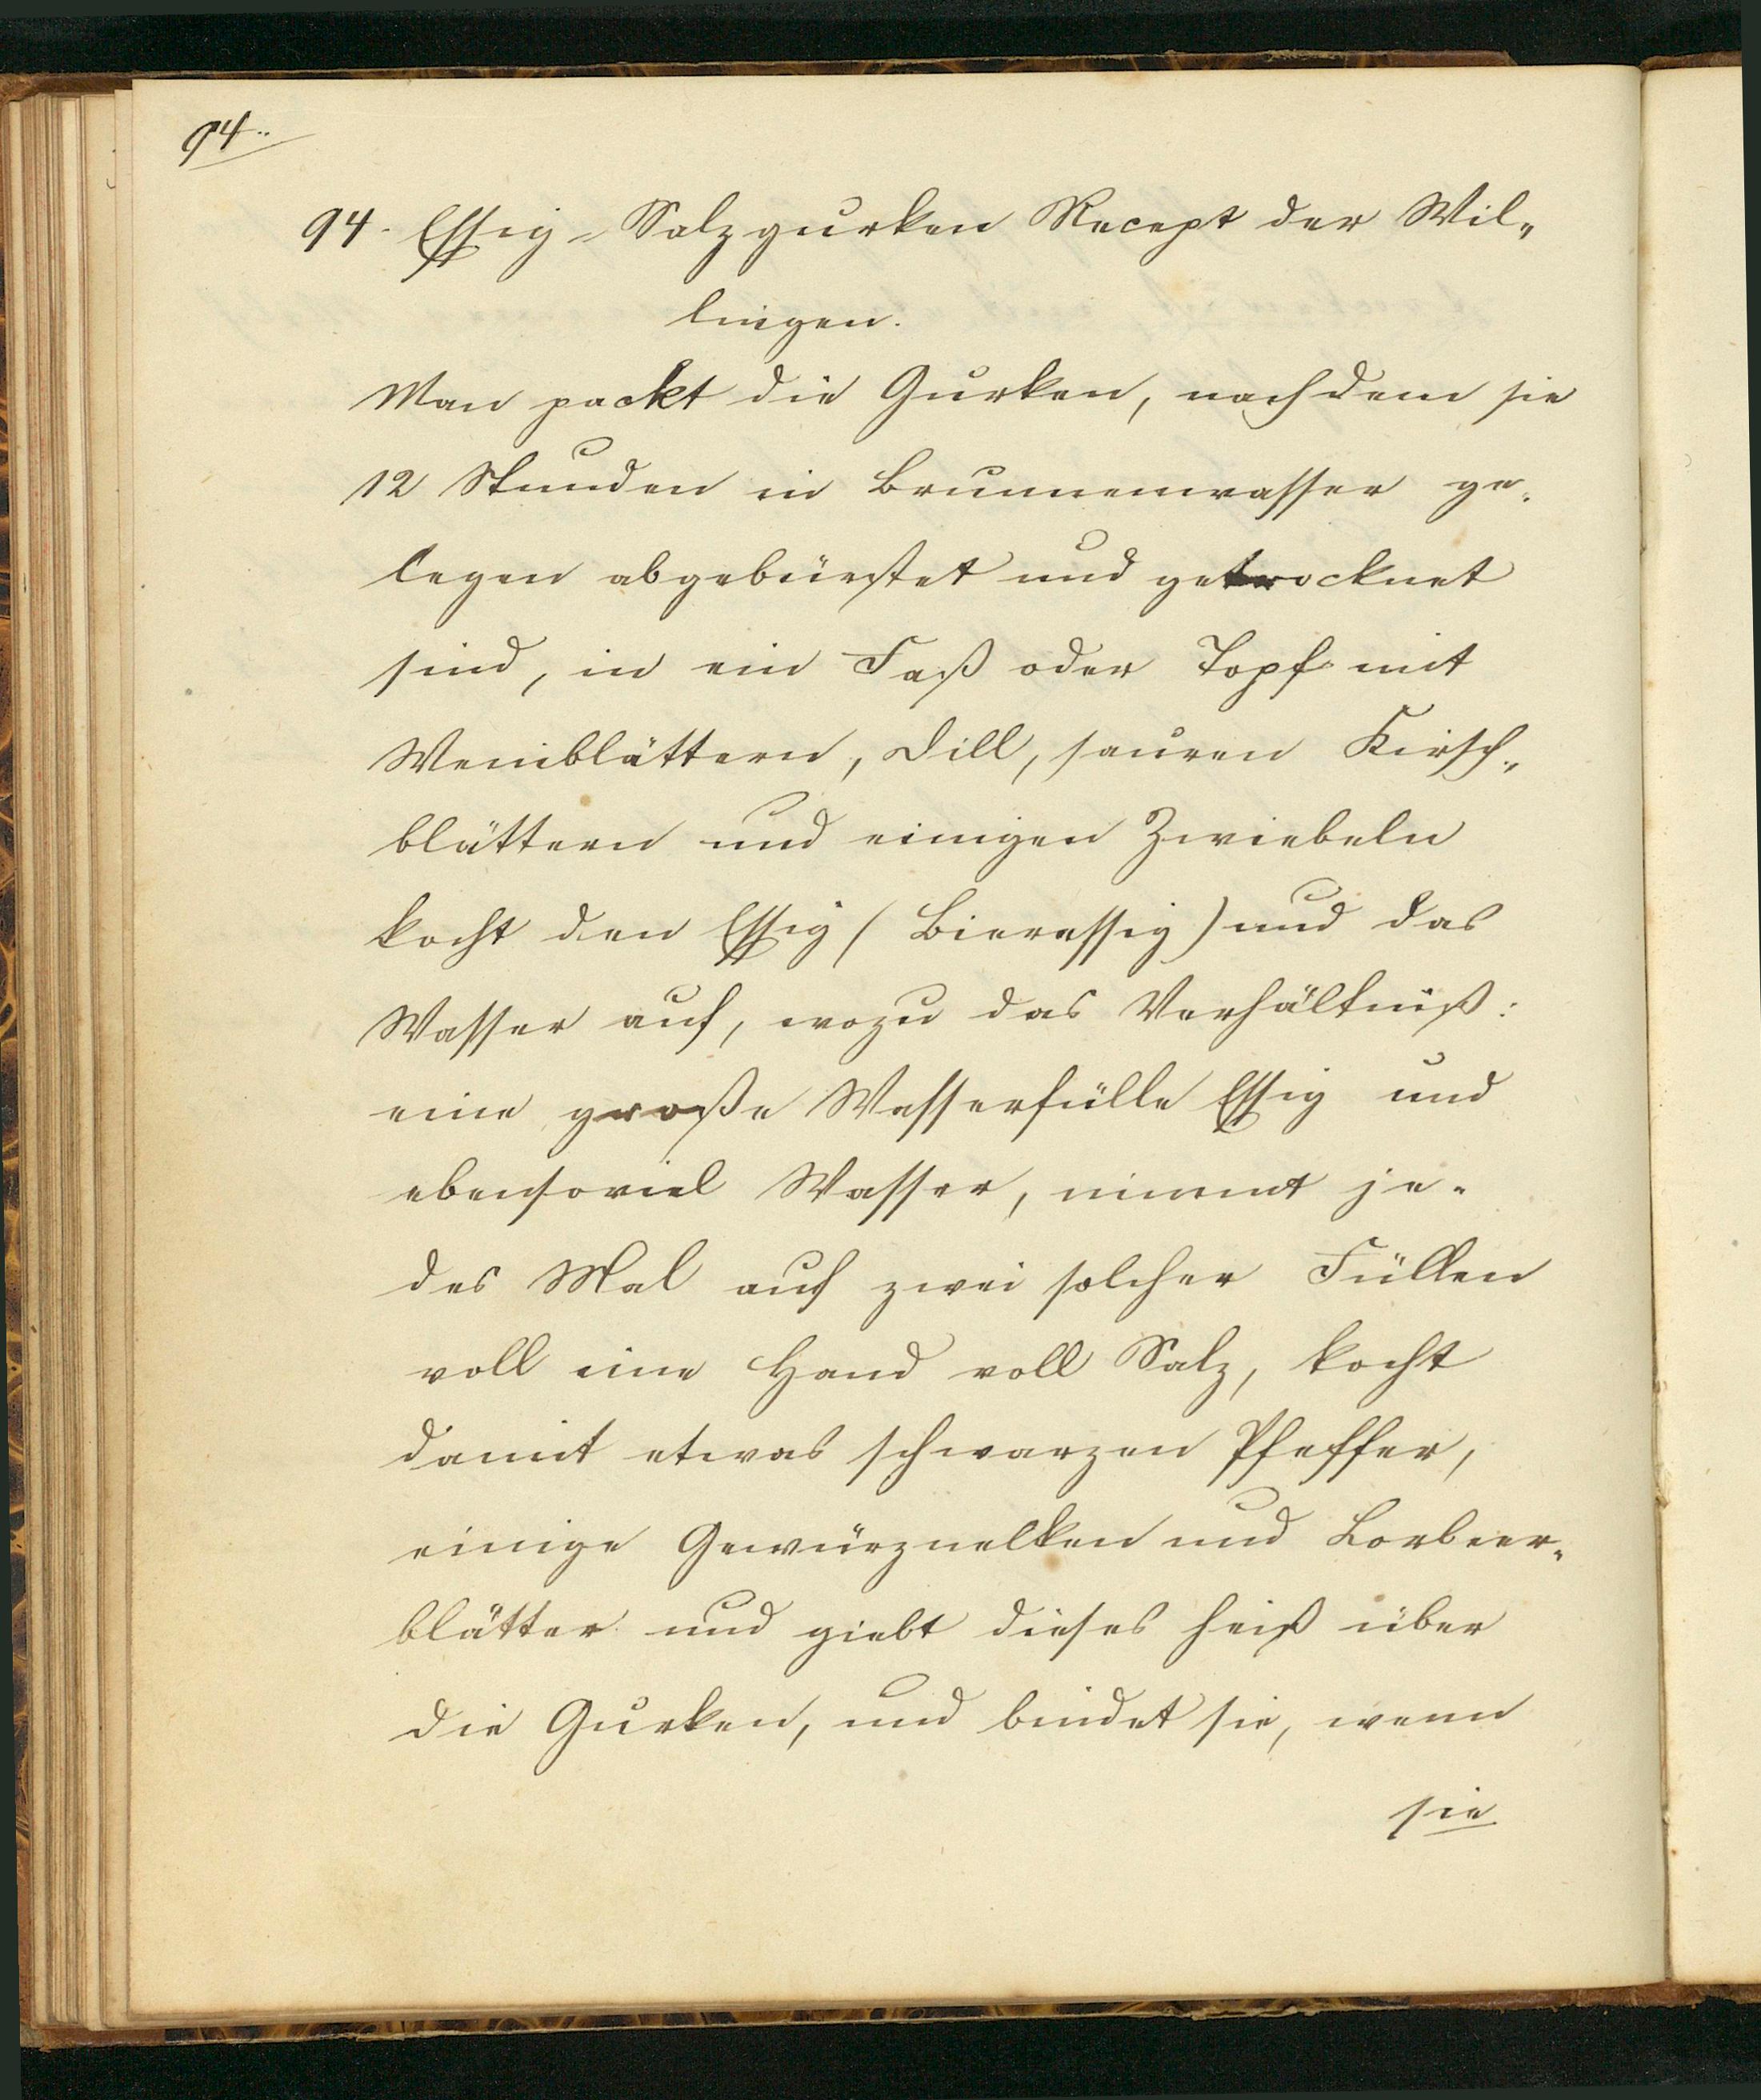 94.
94. Essig-Salzgurken Recept der Wil-
lingen.
Man packt die Gurken, nachdem sie
12 Stunden in Brunnenwasser ge-
legen abgebürstet und getrocknet
sind, in ein Faß oder Topf mit
Weinblättern, Dill, sauren Kirsch-
blättern und einigen Zwiebeln
kocht den Essig (Bieressig) und das
Wasser auf, wozu das Verhältniß:
eine große Wasserfülle Essig und
ebensoviel Wasser, nimmt je-
des Mal auf zwei solcher Füllen
voll eine Hand voll Salz, kocht
damit etwas schwarzen Pfeffer,
einige Gewürznelken und Lorbeer-
blätter und giebt dieses heiß über
die Gurken, und bindet sie, wenn
sie